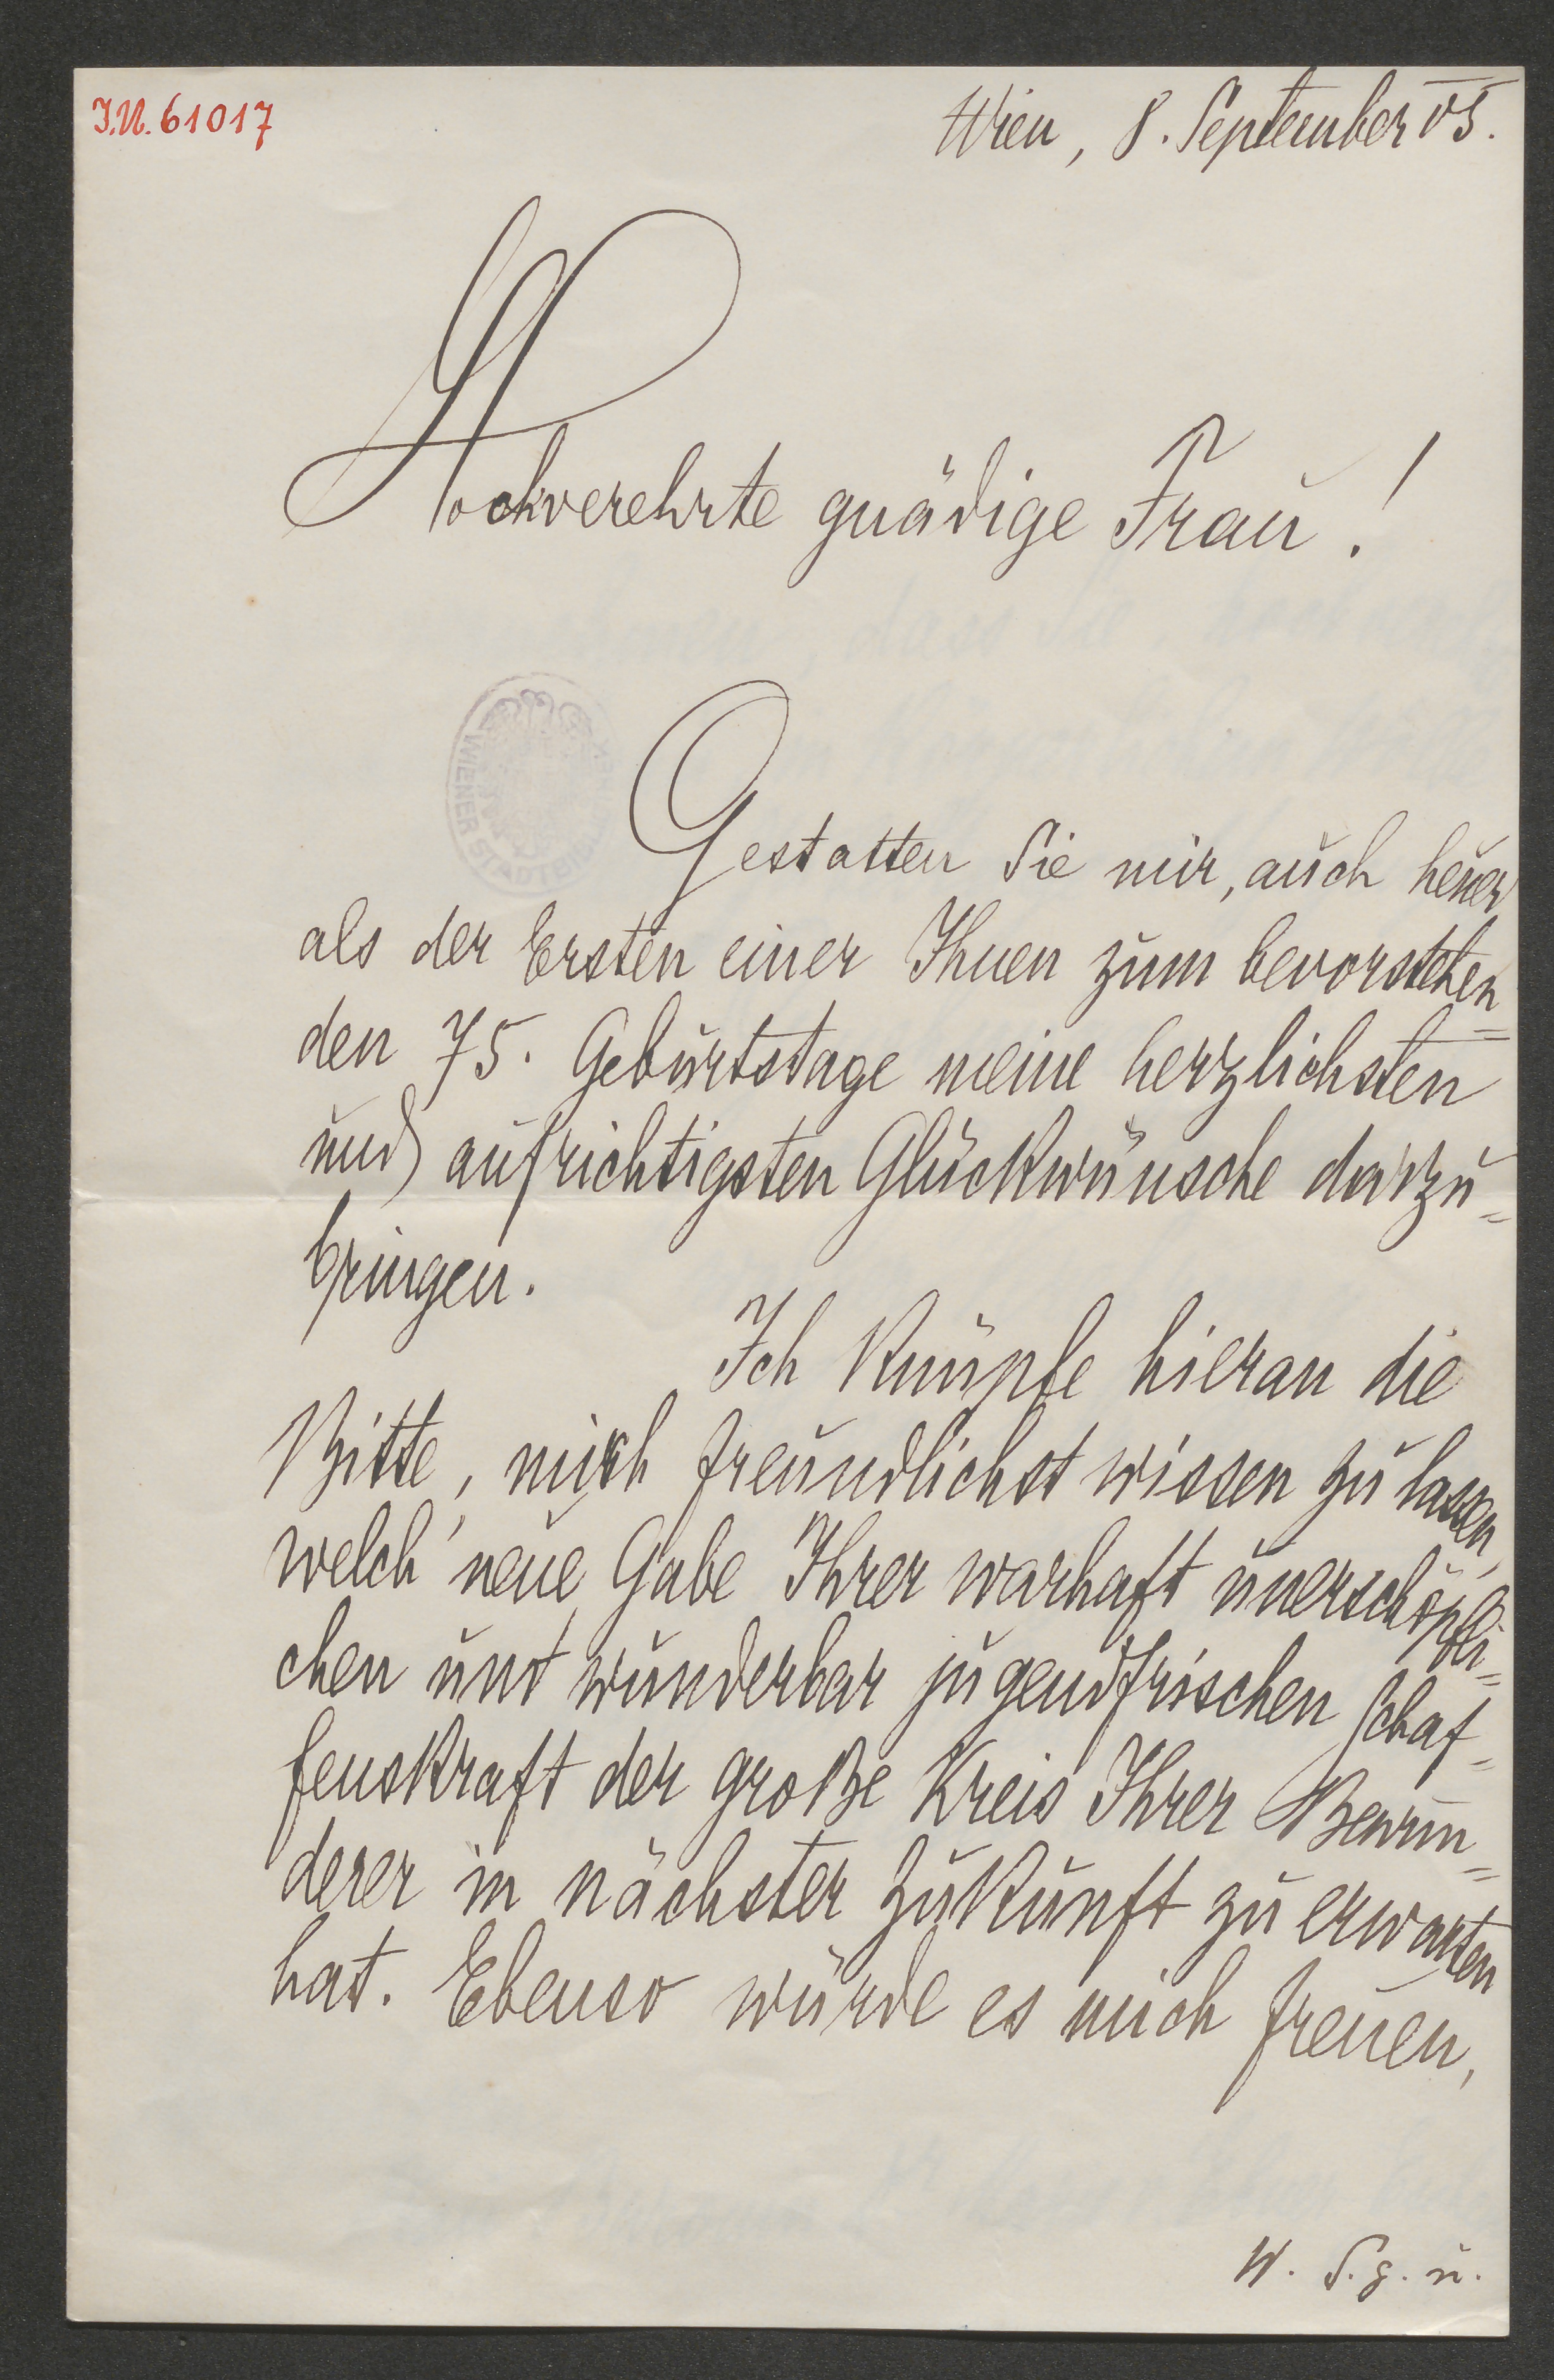 I.N. 61017
Wien, 8. September 05.
Hochverehrte gnädige Frau!
WIENER STADTBI
Gestatten Sie mir, auch heuer
als der Ersten einer Ihnen zum bevorstehen=
den 75. Geburtstage meine herzlichsten
und aufrichtigsten Glückwünsche darzu=
bringen.
Ich knüpfe hieran die
Bitte, mich freundlichst wissen zu lassen,
welch' neue Gabe Ihrer warhaft unerschöpfli=
chen und wunderbar jugendfrischen Schaf=
fenskraft der große Kreis Ihrer Bewun=
derer in nächster Zukunft zu erwarten
hat. Ebenso würde es mich freuen,
W. S. g. u.